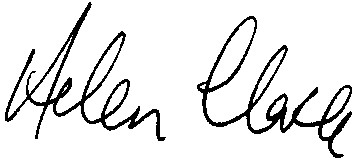 Helen Clark